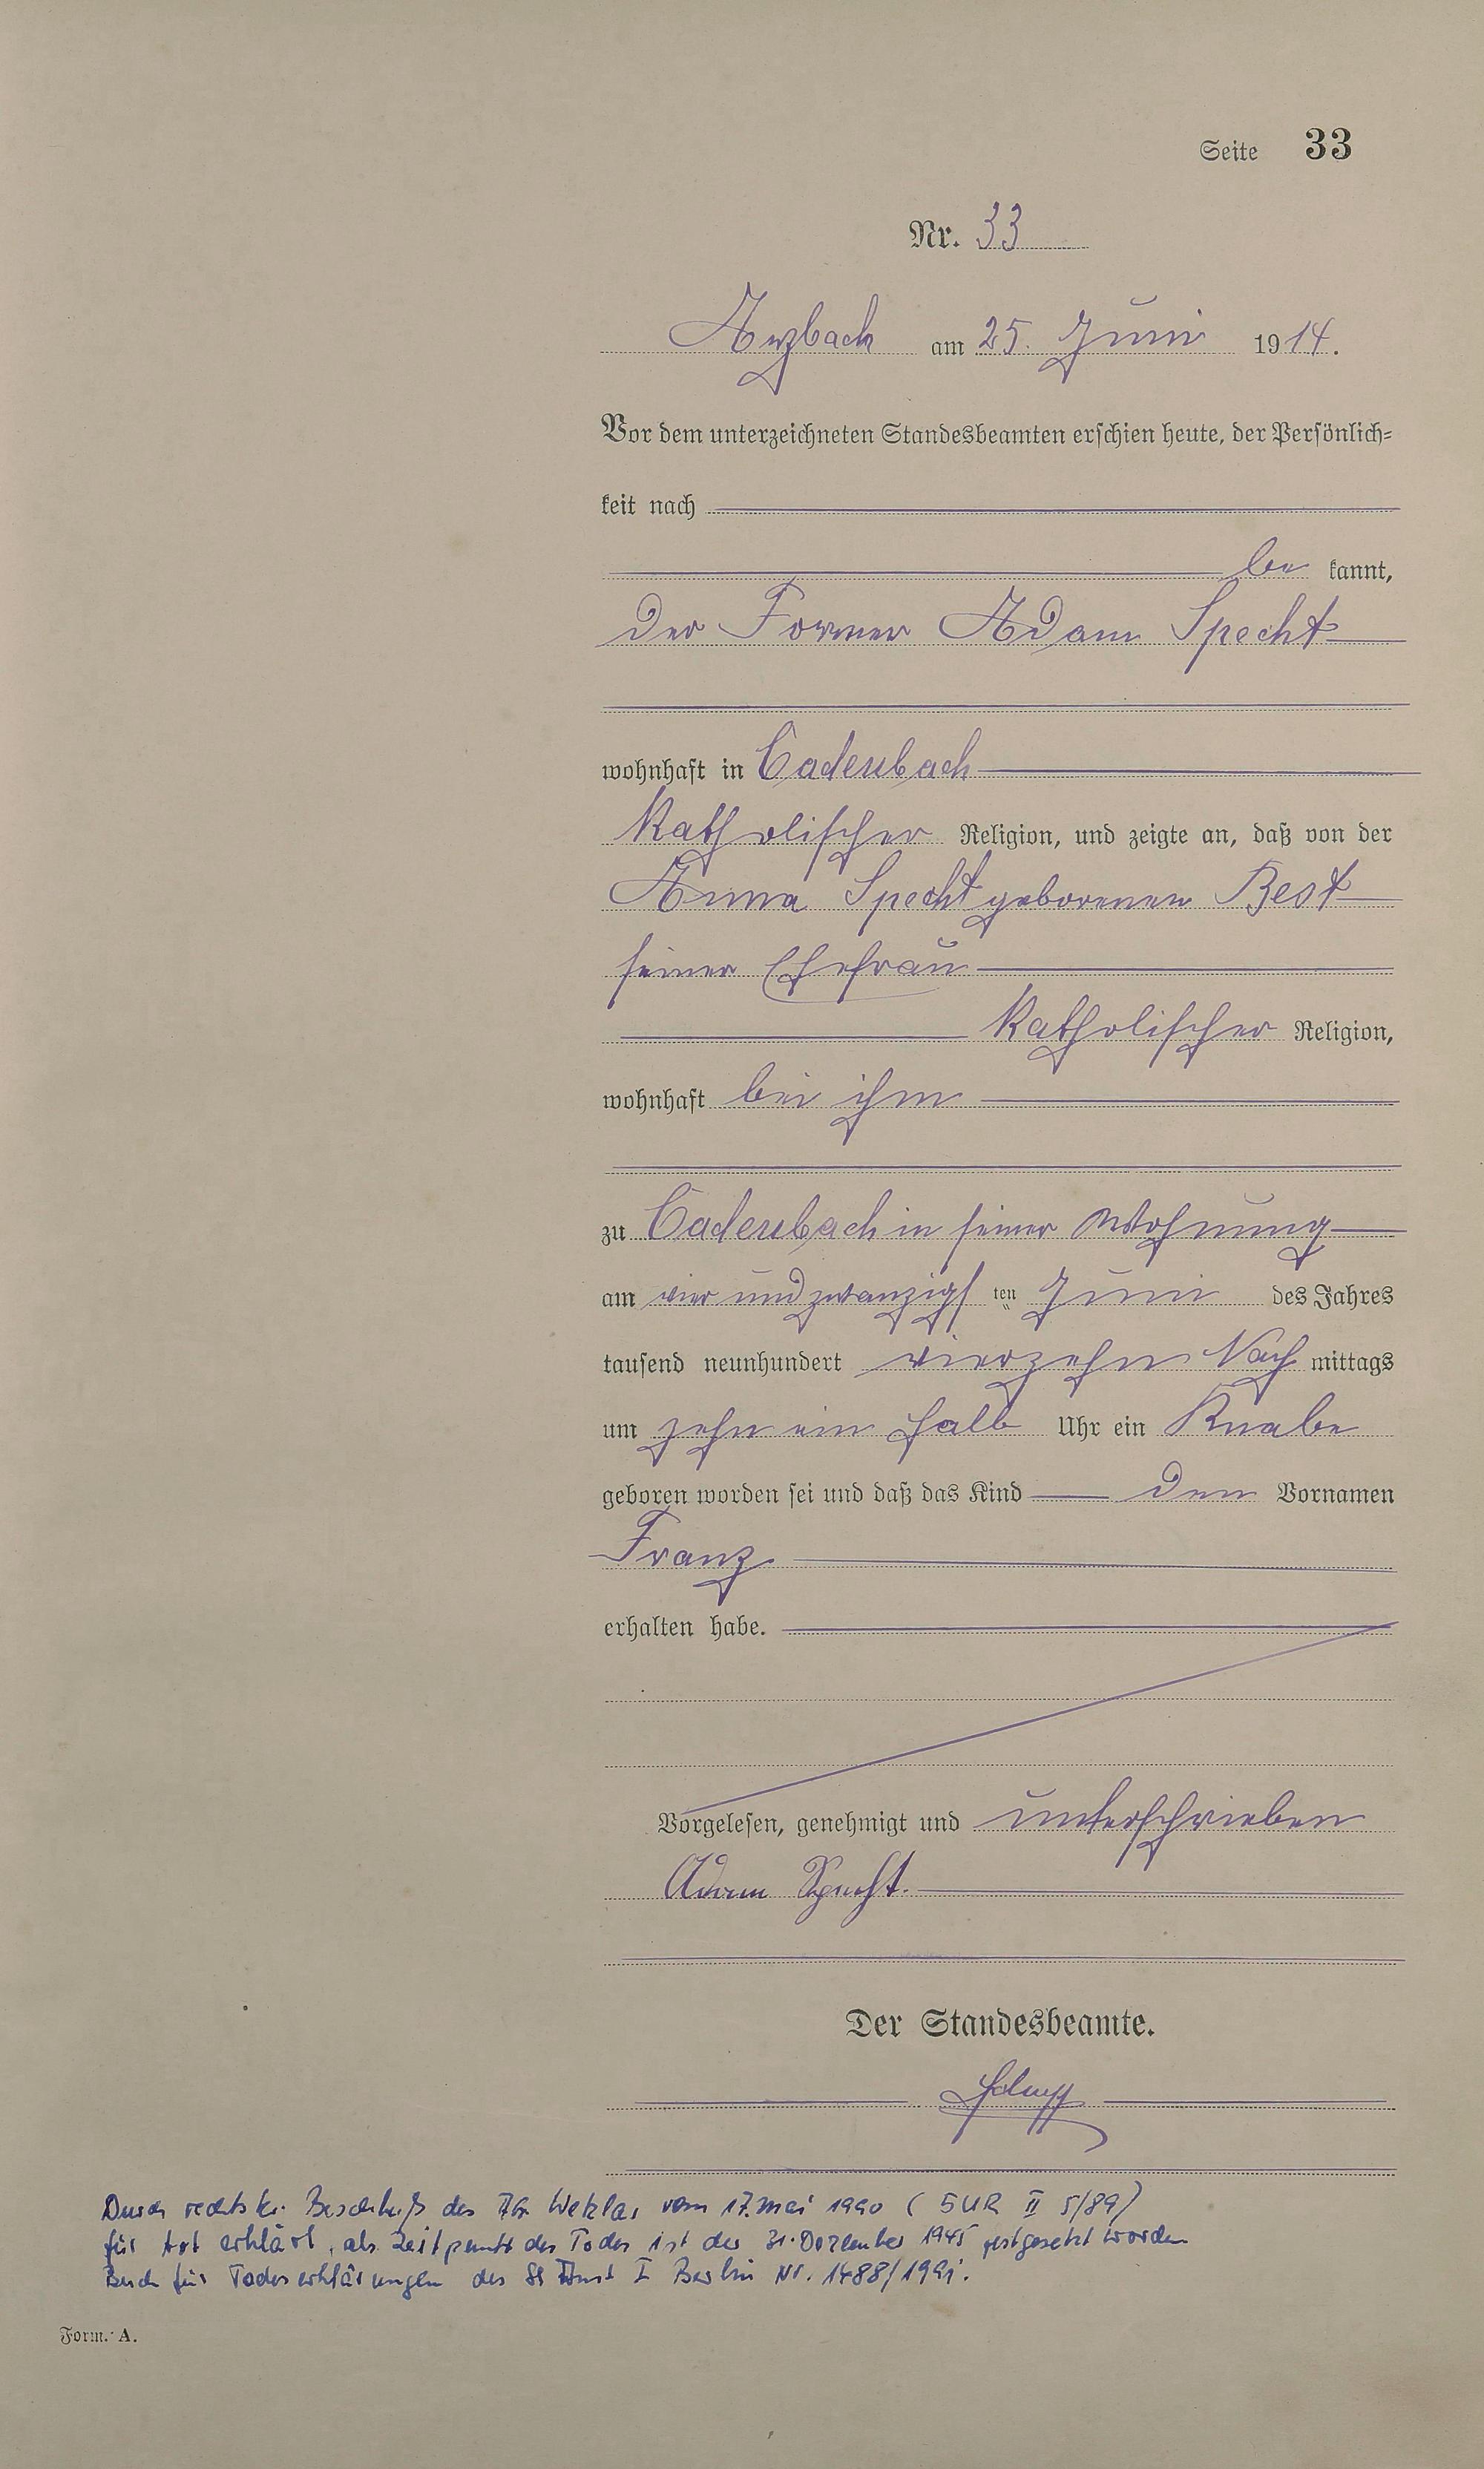 Seite 33
Nr. 33
Arzbach am 25. Juni 1914.
Vor dem unterzeichneten Standesbeamten erschien heute, der Persönlich=
keit nach
be kannt,
der Former Adam Specht
wohnhaft in Cadenbach
katholischer Religion, und zeigte an, daß von der
Anna Specht geborenen Best
seiner Ehefrau
katholischer Religion,
wohnhaft bei ihm
zu Cadenbach in seiner Wohnung
am vier und zwanzigsten Juni des Jahres
tausend neunhundert vierzehn Nach mittags
um zehn ein halb Uhr ein Knabe
geboren worden sei und daß das Kind den Vornamen
Franz
erhalten habe.
Vorgelesen, genehmigt und unterschrieben
Adam Specht.
Der Standesbeamte.
Durch rechtskr. Beschluß des AG. Wetzlar vom 17. Mai 1990 (5UR II 5/89)
für tot erklärt, als Zeitpunkt des Todes ist der 31. Dezember 1945 festgesetzt worden
Buch für Todeserklärungen des St Amt I Berlin Nr. 1488/1991.
Form. A.